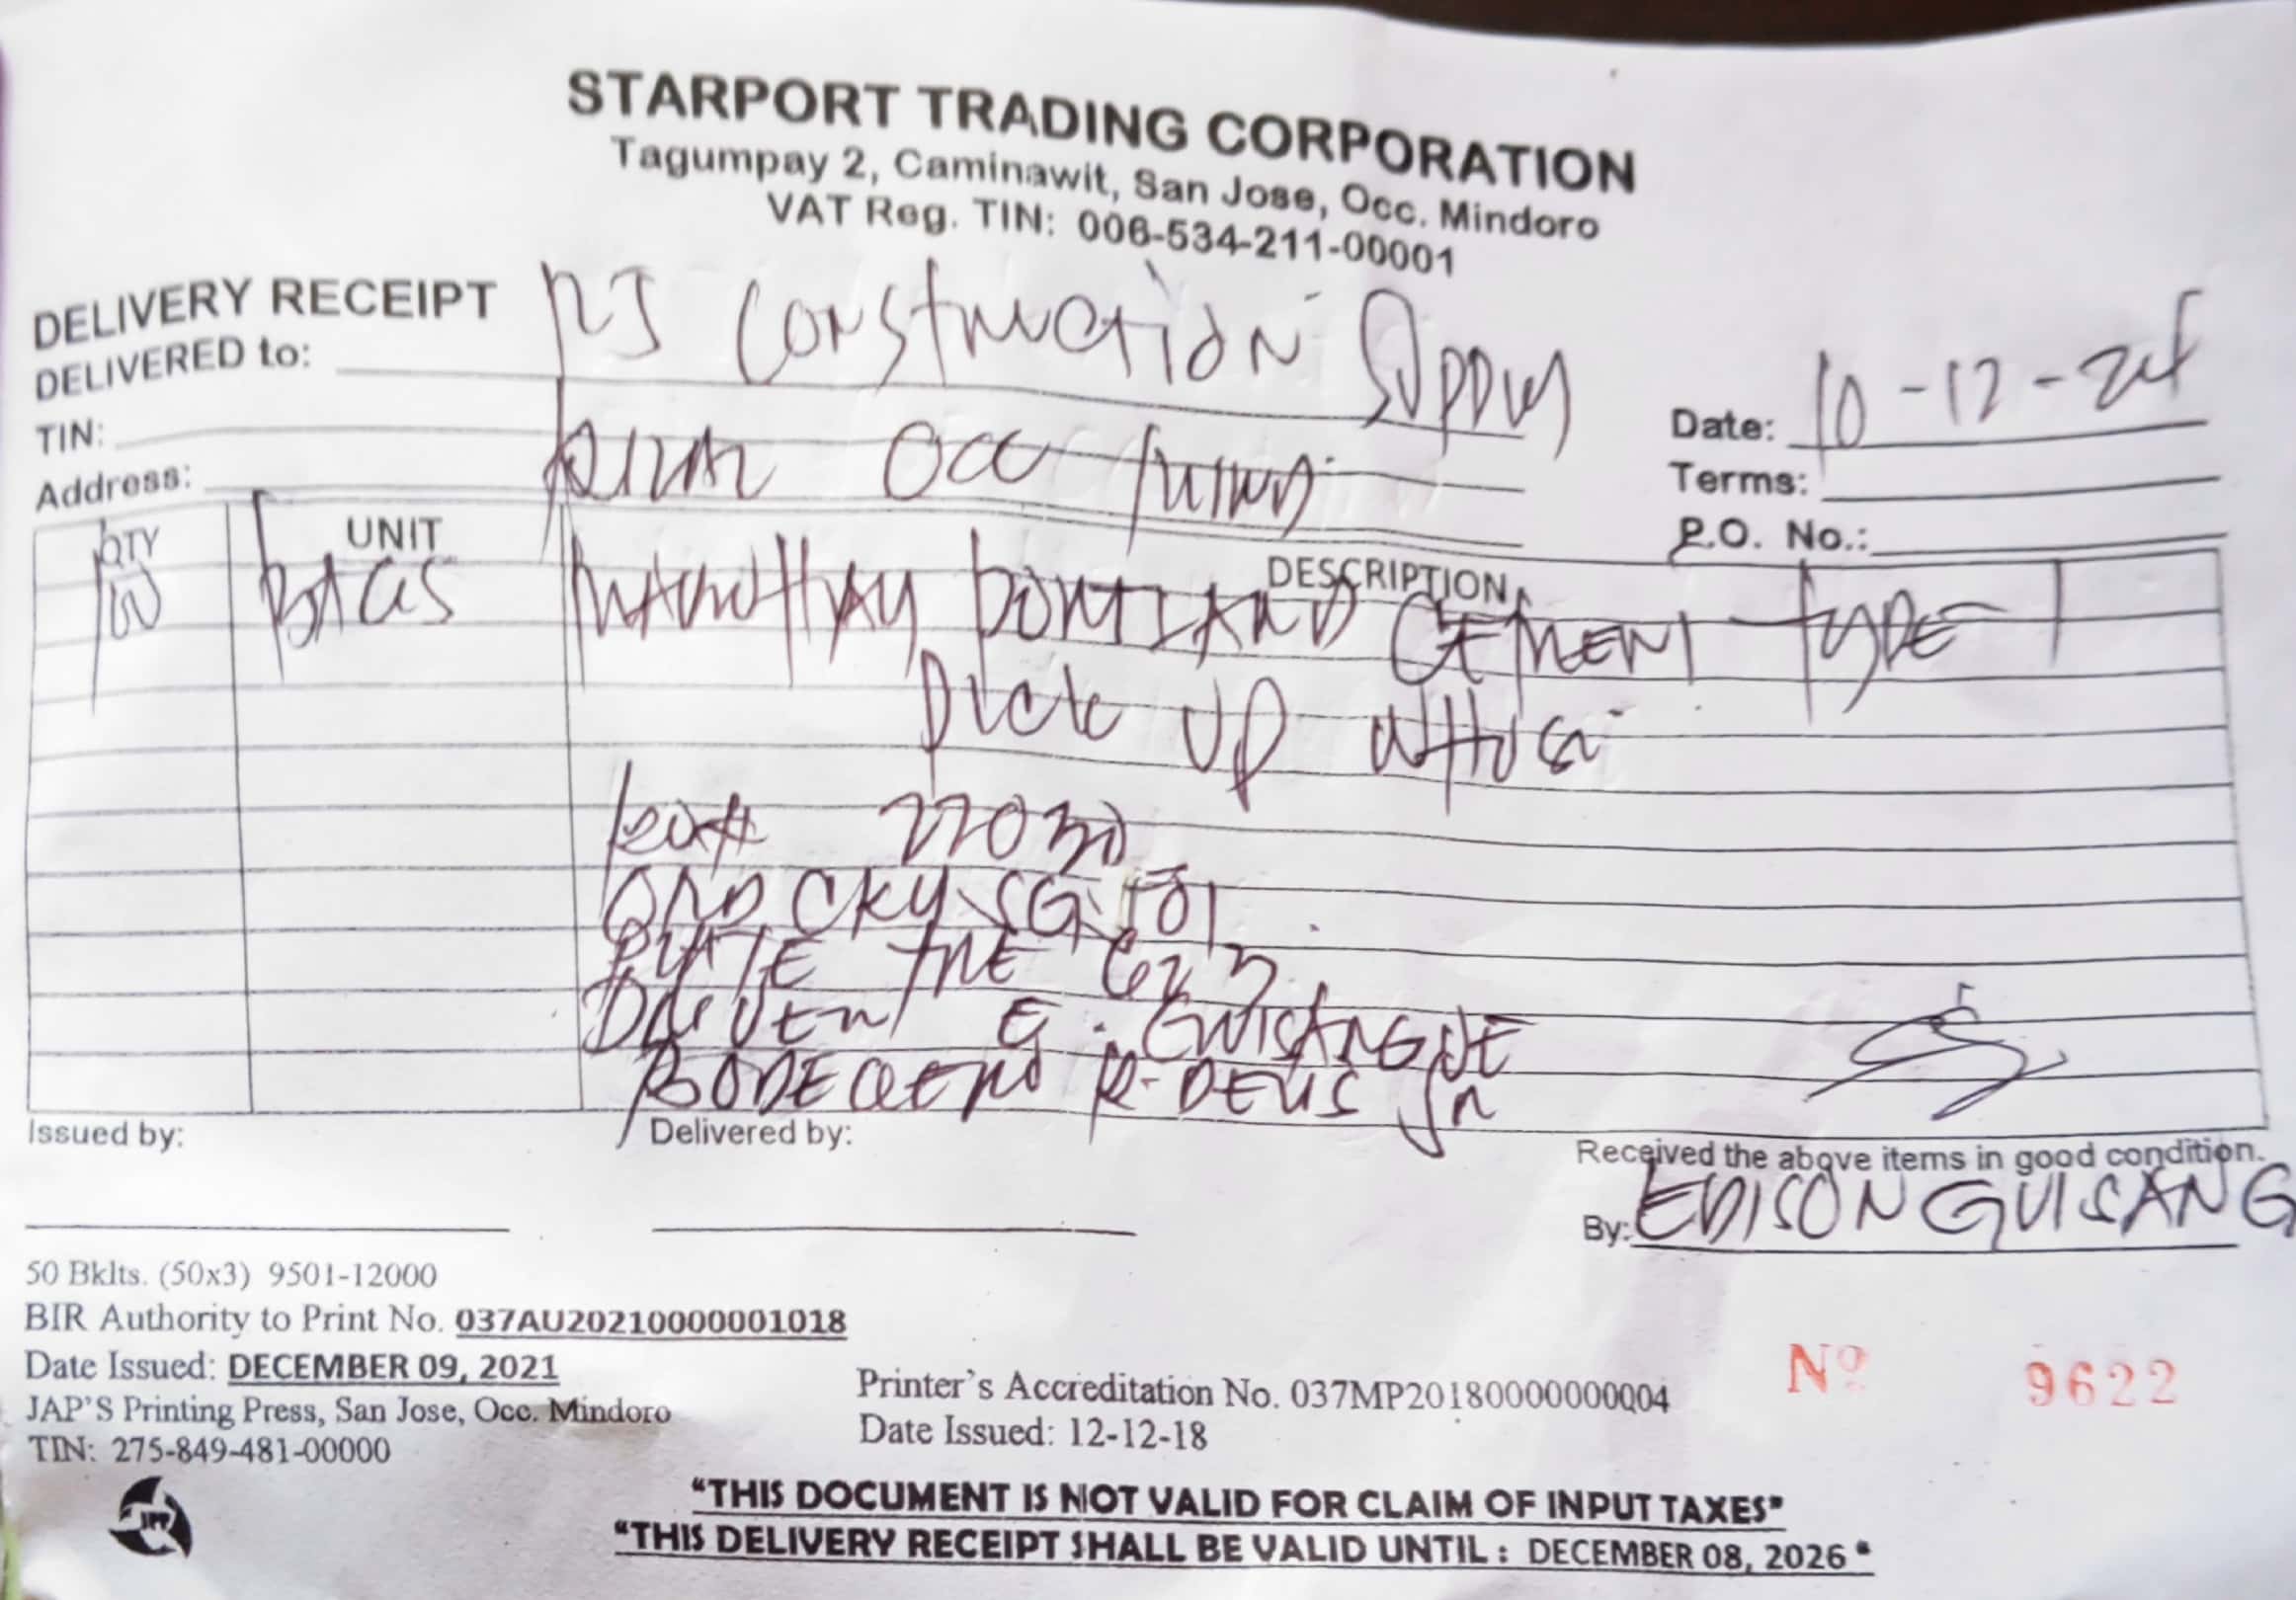 STARPORT TRADING CORPORATION
Tagumpay 2, Caminawit, San Jose, Occ. Mindoro
VAT Reg. TIN: 006-534-211-00001
DELIVERY RECEIPT
DELIVERED to: Construction Supply
TIN:
Address: Occ
Date: 10-12-24
Terms:
P.O. No.:
QTY UNIT DESCRIPTION
BAGS PORTLAND CEMENT TYPE 1
PICK UP
22030
PLATE
DRIVER E. GUISANG
BODEGERO JR
Issued by:
Delivered by:
Received the above items in good condition.
By: EDISON GUISANG
50 Bklts. (50x3) 9501-12000
BIR Authority to Print No. 037AU20210000001018
Date Issued: DECEMBER 09, 2021
JAP'S Printing Press, San Jose, Occ. Mindoro
TIN: 275-849-481-00000
Printer's Accreditation No. 037MP20180000000004
Date Issued: 12-12-18
Nº 9622
"THIS DOCUMENT IS NOT VALID FOR CLAIM OF INPUT TAXES"
"THIS DELIVERY RECEIPT SHALL BE VALID UNTIL : DECEMBER 08, 2026"